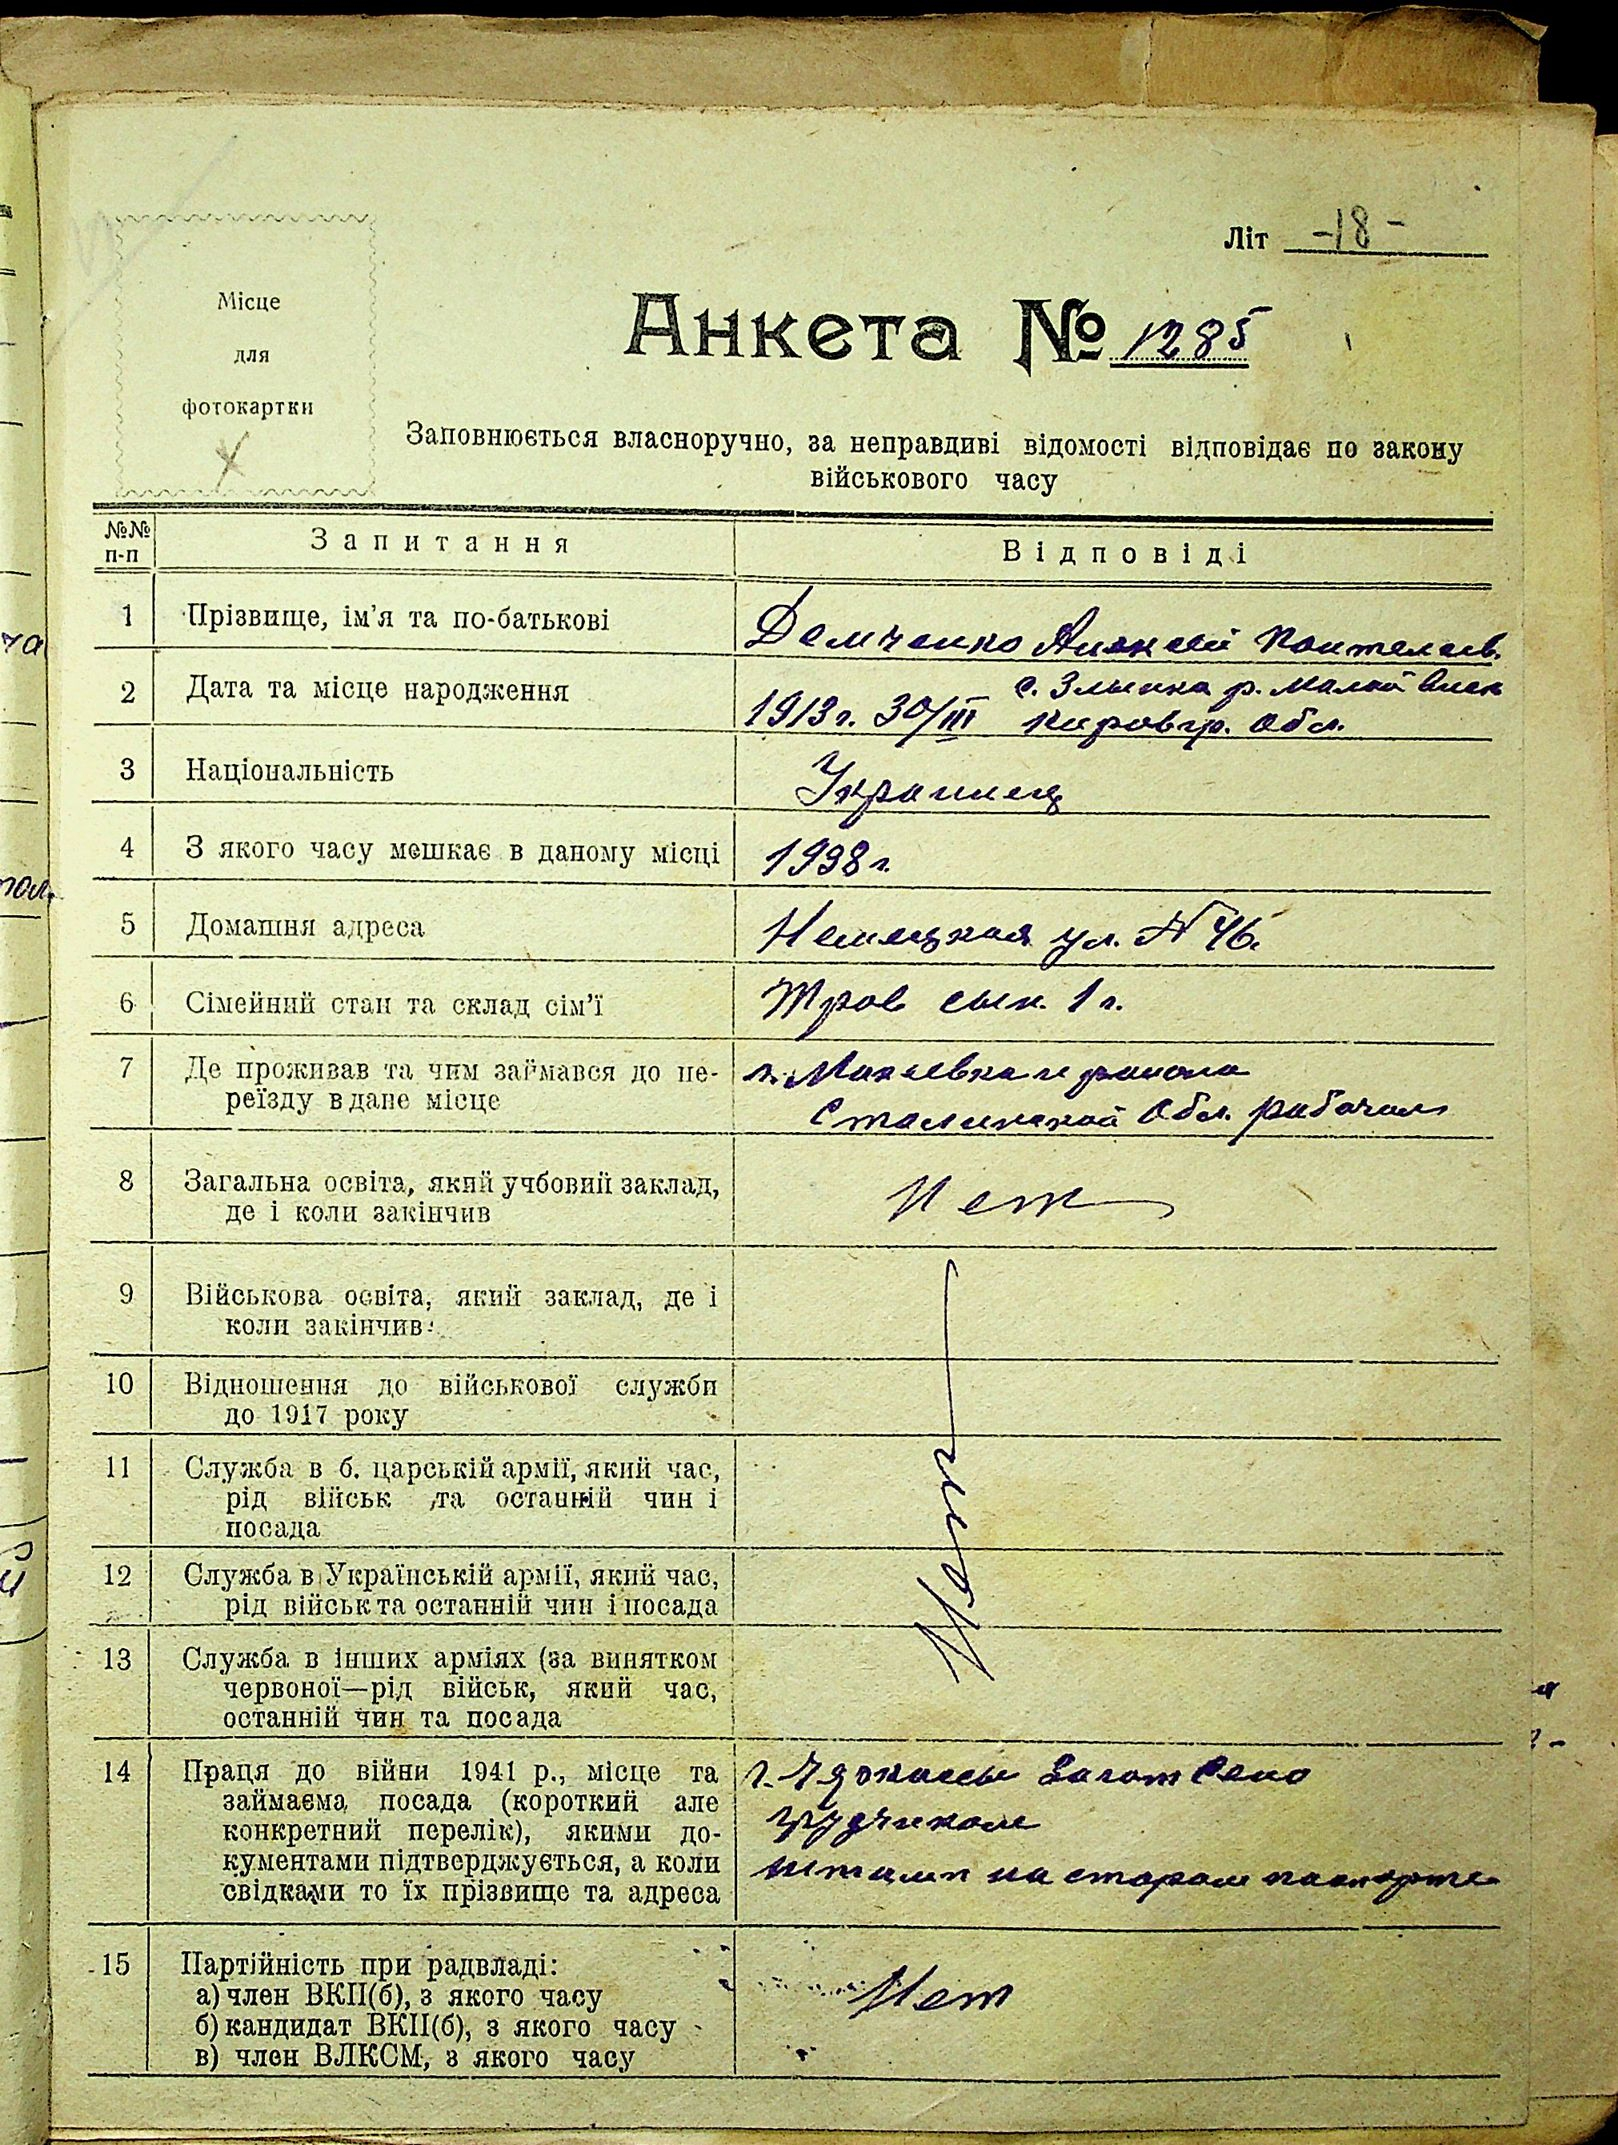 Літ -18-
Місце
для
фотокартки
Анкета № 1285
Заповнюється власноручно, за неправдиві відомості відповідає по закону
військового часу
№№
п-п
Запитання
Відповіді
1 Прізвище, ім'я та по-батькові
Демченко Алексей Пантелеев.
2 Дата та місце народження
с. Злынка р. Малой Виск
1913 г. 30/III Кировгр. обл.
3 Національність
Украинец
4 З якого часу мешкає в даному місці
1938 г.
5 Домашня адреса
Немецкая ул. № 46.
6 Сімейний стан та склад сім'ї
сын. 1 г.
7 Де проживав та чим займався до пе-
реїзду в дане місце
г. Макеевка
Сталинской Обл. рабочим
8 Загальна освіта, який учбовий заклад,
де і коли закінчив
Нет
9 Військова освіта, який заклад, де і
коли закінчив
10 Відношення до військової служби
до 1917 року
11 Служба в б. царській армії, який час,
рід військ та останній чин і
посада
12 Служба в Українській армії, який час,
рід військ та останній чин і посада
13 Служба в інших арміях (за винятком
червоної—рід військ, який час,
останній чин та посада
Нет
14 Праця до війни 1941 р., місце та
займаєма посада (короткий але
конкретний перелік), якими до-
кументами підтверджується, а коли
свідками то їх прізвище та адреса
г. Черкассы Загот Сено
грузчиком
штамп на старом паспорте
15 Партійність при радвладі:
а) член ВКП(б), з якого часу
б) кандидат ВКП(б), з якого часу
в) член ВЛКСМ, з якого часу
Нет